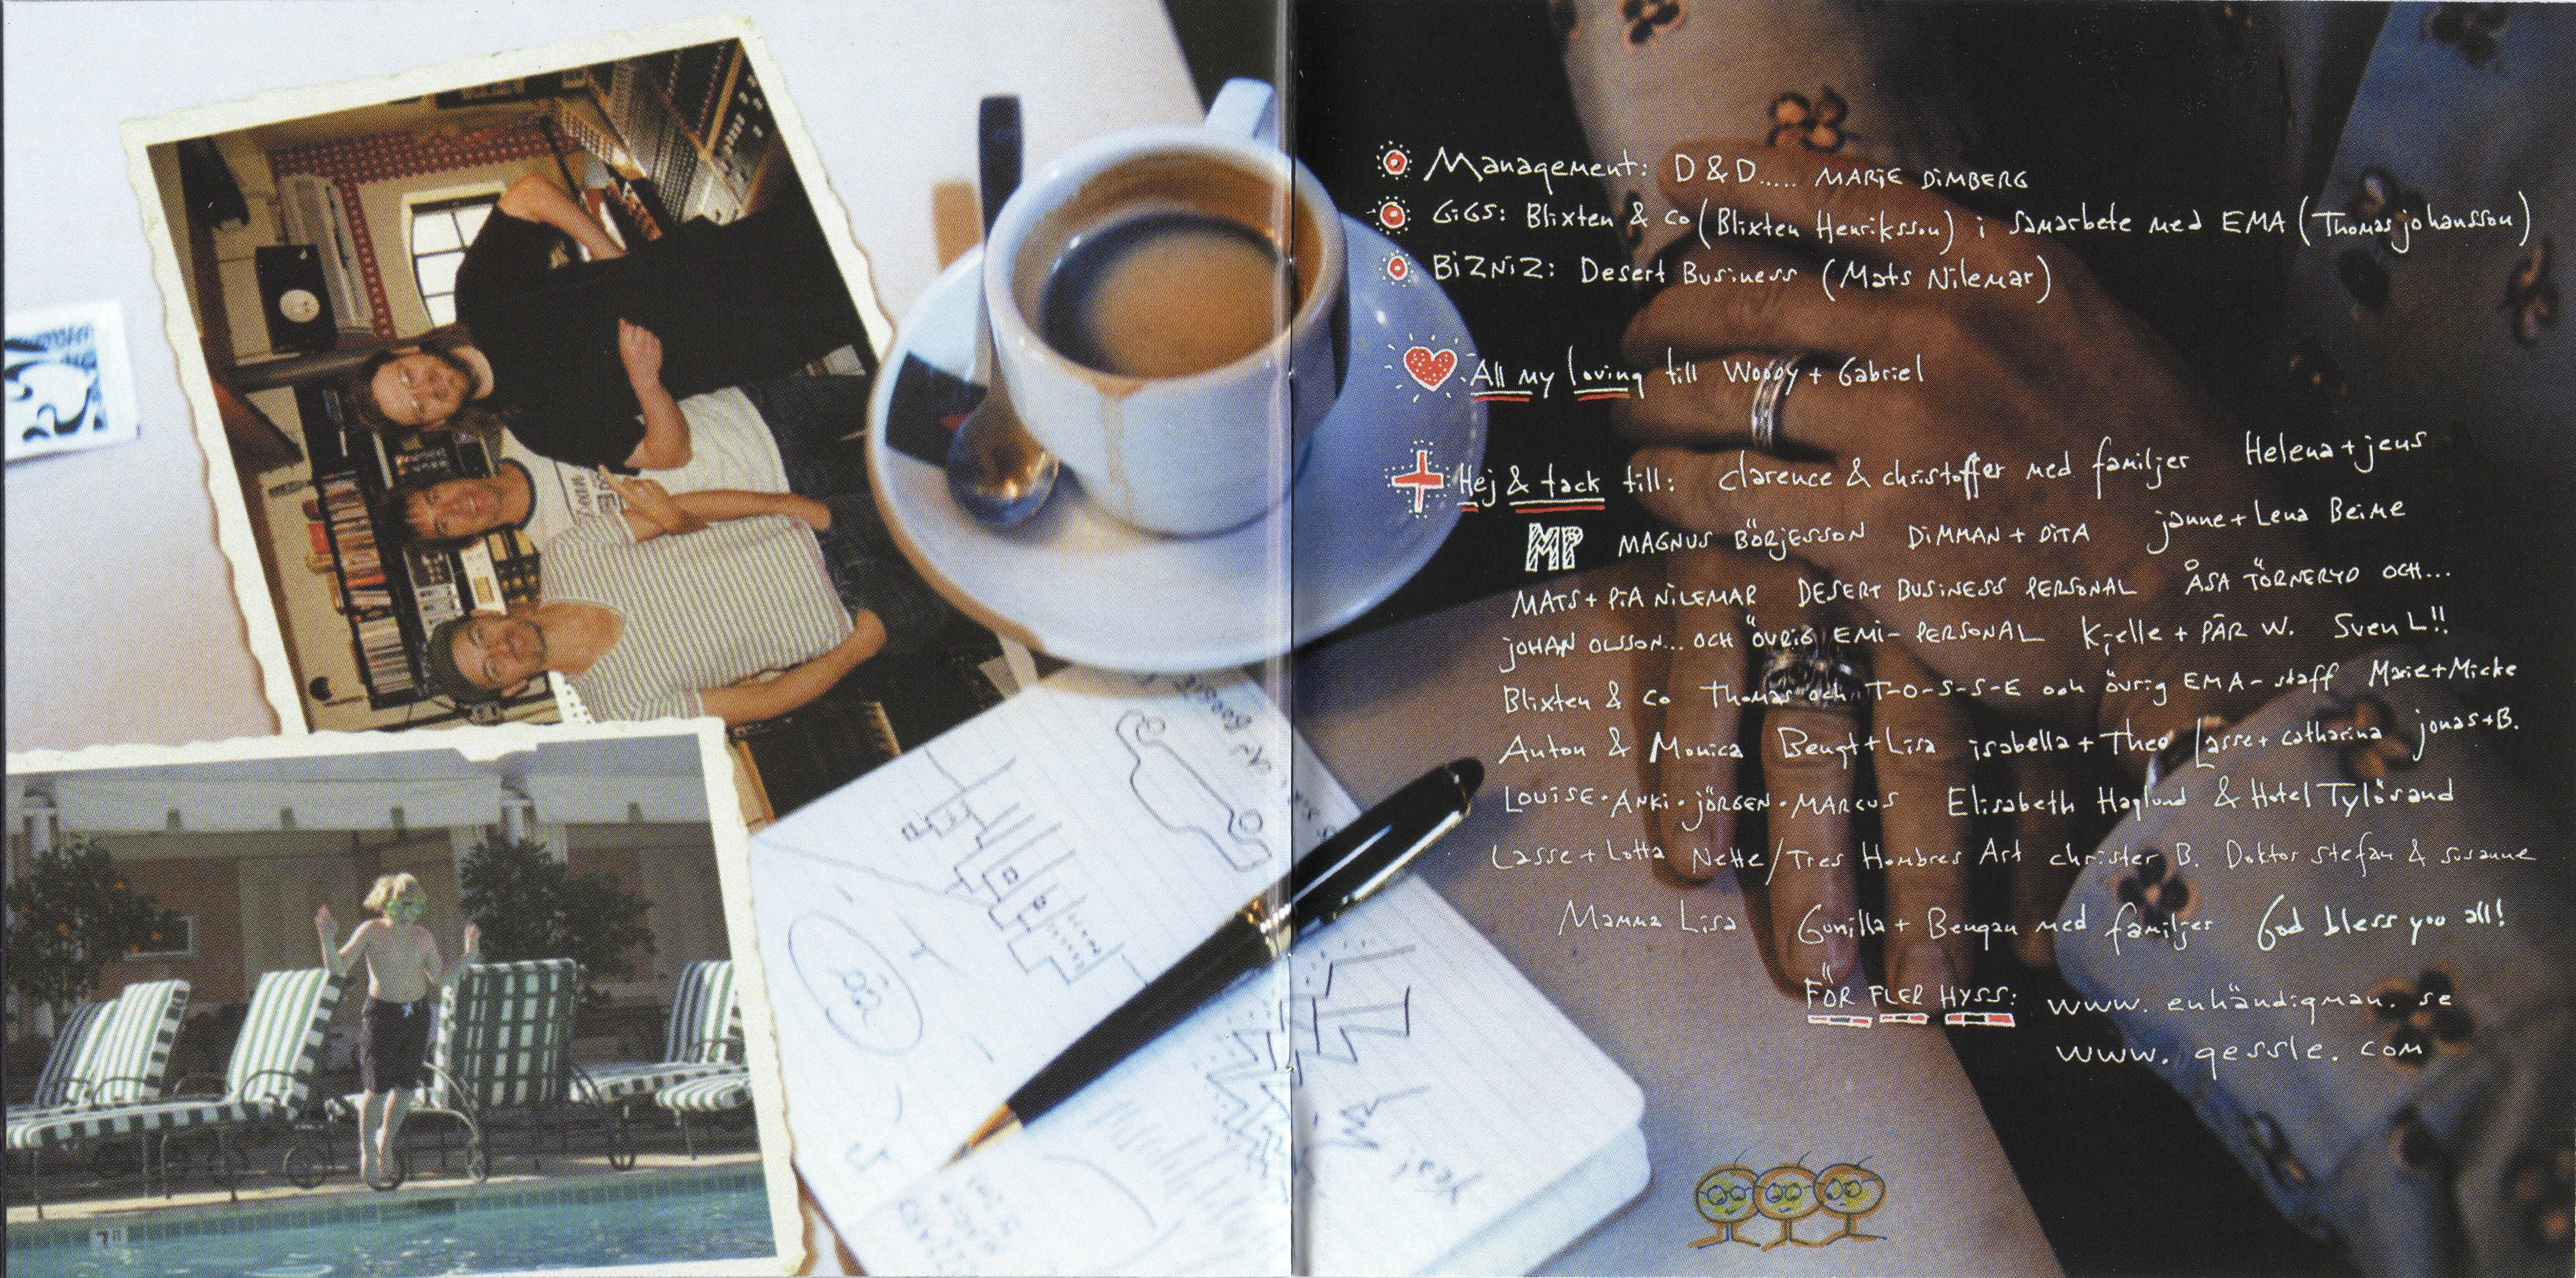 Management: D & D..... MARIE DIMBERG
GIGS: Blixten & Co (Blixten Henriksson) i samarbete med EMA (Thomas johansson)
BIZNIZ: Desert Business (Mats Nilemar)
All my loving till Woody + Gabriel
Hej & tack till: Clarence & christoffer med familjer Helena + jens
MP MAGNUS BÖRJESSON DIMMAN + DITA janne + Lena Beime
MATS + PIA NILEMAR DESERT BUSINESS PERSONAL ÅSA TÖRNERYD OCH...
JOHAN OLSSON... OCH ÖVRIG EMI-PERSONAL Kjelle + PÄR W. Sven L!!
Blixten & Co Thomas och T-O-S-S-E och övrig EMA-staff Marie + Micke
Anton & Monica Bengt + Lisa isabella + Theo Lasse + Catharina jonas + B.
LOUISE · ANKI · JÖRGEN · MARCUS Elisabeth Haglund & Hotel Tylösand
Lasse + Lotta Nette/Tres Hombres Art christer B. Doktor Stefan & Susanne
Mamma Lisa Gunilla + Bengan med familjer God bless you all!
FÖR FLER HYSS: www.enhändigman.se
www.gessle.com
yes!